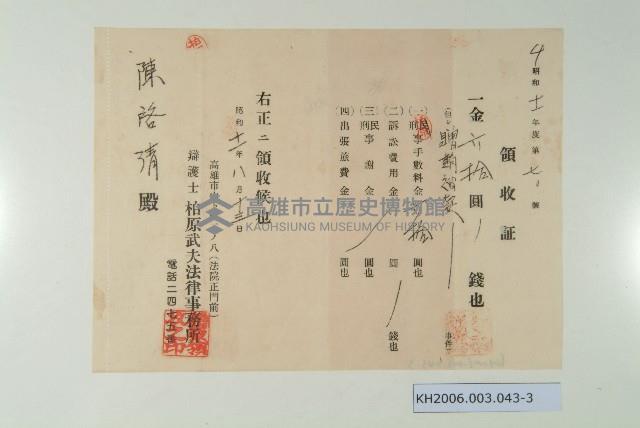 昭和十一年度第七〇號
領收証
一金六拾圓 錢也
事件
(一)民刑事手數料金 拾圓也
(二)訴訟費用金 圓 錢也
(三)民刑事謝金 圓也
(四)出張旅費金 圓也
右正ニ領收候也
昭和十一年八月十三日
高雄市 ノ八(法院正門前)
辯護士 柏原武夫法律事務所
電話二四七五番
陳啓清殿
高雄市立歷史博物館
KAOHSIUNG MUSEUM OF HISTORY
KH2006.003.043-3